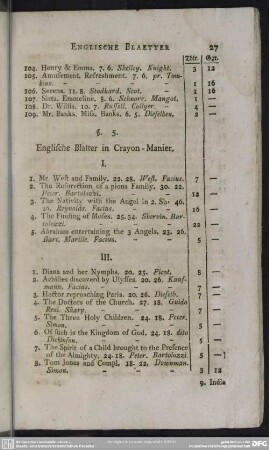 ENGLISCHE BLAETTER 27
Thlr. Ggr.
104. Henry & Emma. 7. 6. Shelley. Knight. 3 12
105. Amusement. Refreshment. 7. 6. pr. Tom-
kins. 1 16
106. Serena. 11. 8. Stodhard. Scot. 1 16
107. Sista. Emoseline. 8. 6. Schnorr. Mangot. 1
108. Dr. Willis. 10. 8. Russell. Collyer. 4
109. Mr. Banks. Miss. Banks. 6. 5. Dieselben. 2
§. 5.
Englische Blätter in Crayon-Manier.
I.
1. Mr West and Family. 22. 28. West. Facius. 7
2. The Resurrection of a pious Family. 30. 22.
Peter. Bartolozzi. 12
3. The Nativity with the Angel in 2. Sh. 46.
26. Reynolds. Facius. 16
4. The Finding of Moses. 25. 34. Sherwin. Bar-
tolozzi. 22
5. Abraham entertaining the 3 Angels. 23. 26.
Bars. Murille. Facius. 5
III.
1. Diana and her Nymphs. 20. 25. Picot. 8
2. Achilles discovered by Ulysses. 20. 26. Kauf-
mann. Facius. 7
3. Hector reproaching Paris. 20. 26. Dieselb. 7
4. The Doctors of the Church. 27. 18. Guido
Reni. Sharp. 7
5. The Three Holy Children. 24. 18. Peter.
Simon. 5
6. Of such is the Kingdom of God. 24. 18. dito
Dickinson. 5
7. The Spirit of a Child brought to the Presence
of the Almighty. 24. 18. Peter. Bartolozzi. 5
8. Tom Jones and Compl. 18. 22. Downman.
Simon. 3 12
9. India